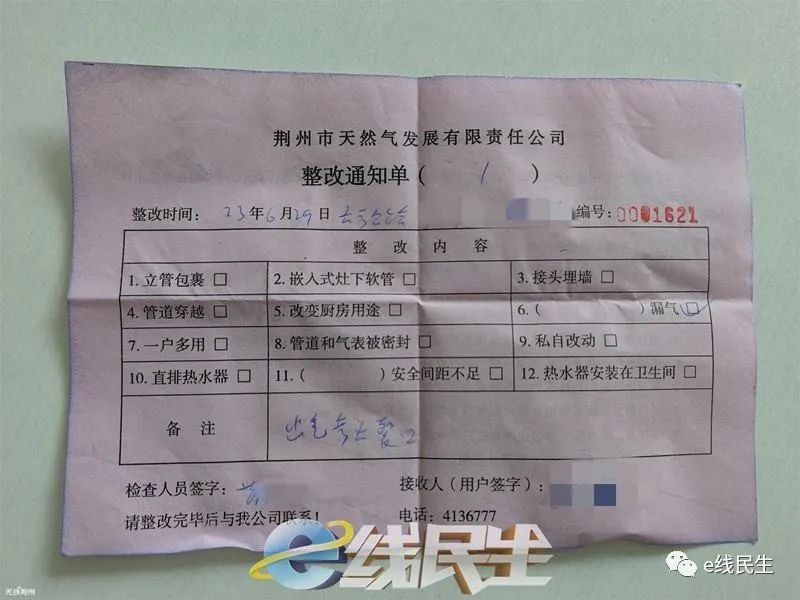 荆州市天然气发展有限责任公司
整改通知单( 1 )
整改时间: 23年6月29日 编号:0001621
整 改 内 容
1.立管包裹 □ 2.嵌入式灶下软管 □ 3.接头埋墙 □
4.管道穿越 □ 5.改变厨房用途 □ 6.( )漏气 ☑
7.一户多用 □ 8.管道和气表被密封 □ 9.私自改动 □
10.直排热水器 □ 11.( )安全间距不足 □ 12.热水器安装在卫生间 □
备 注 出气
检查人员签字: 接收人(用户签字):
请整改完毕后与我公司联系! 电话:4136777
e线民生
e线民生
无线荆州